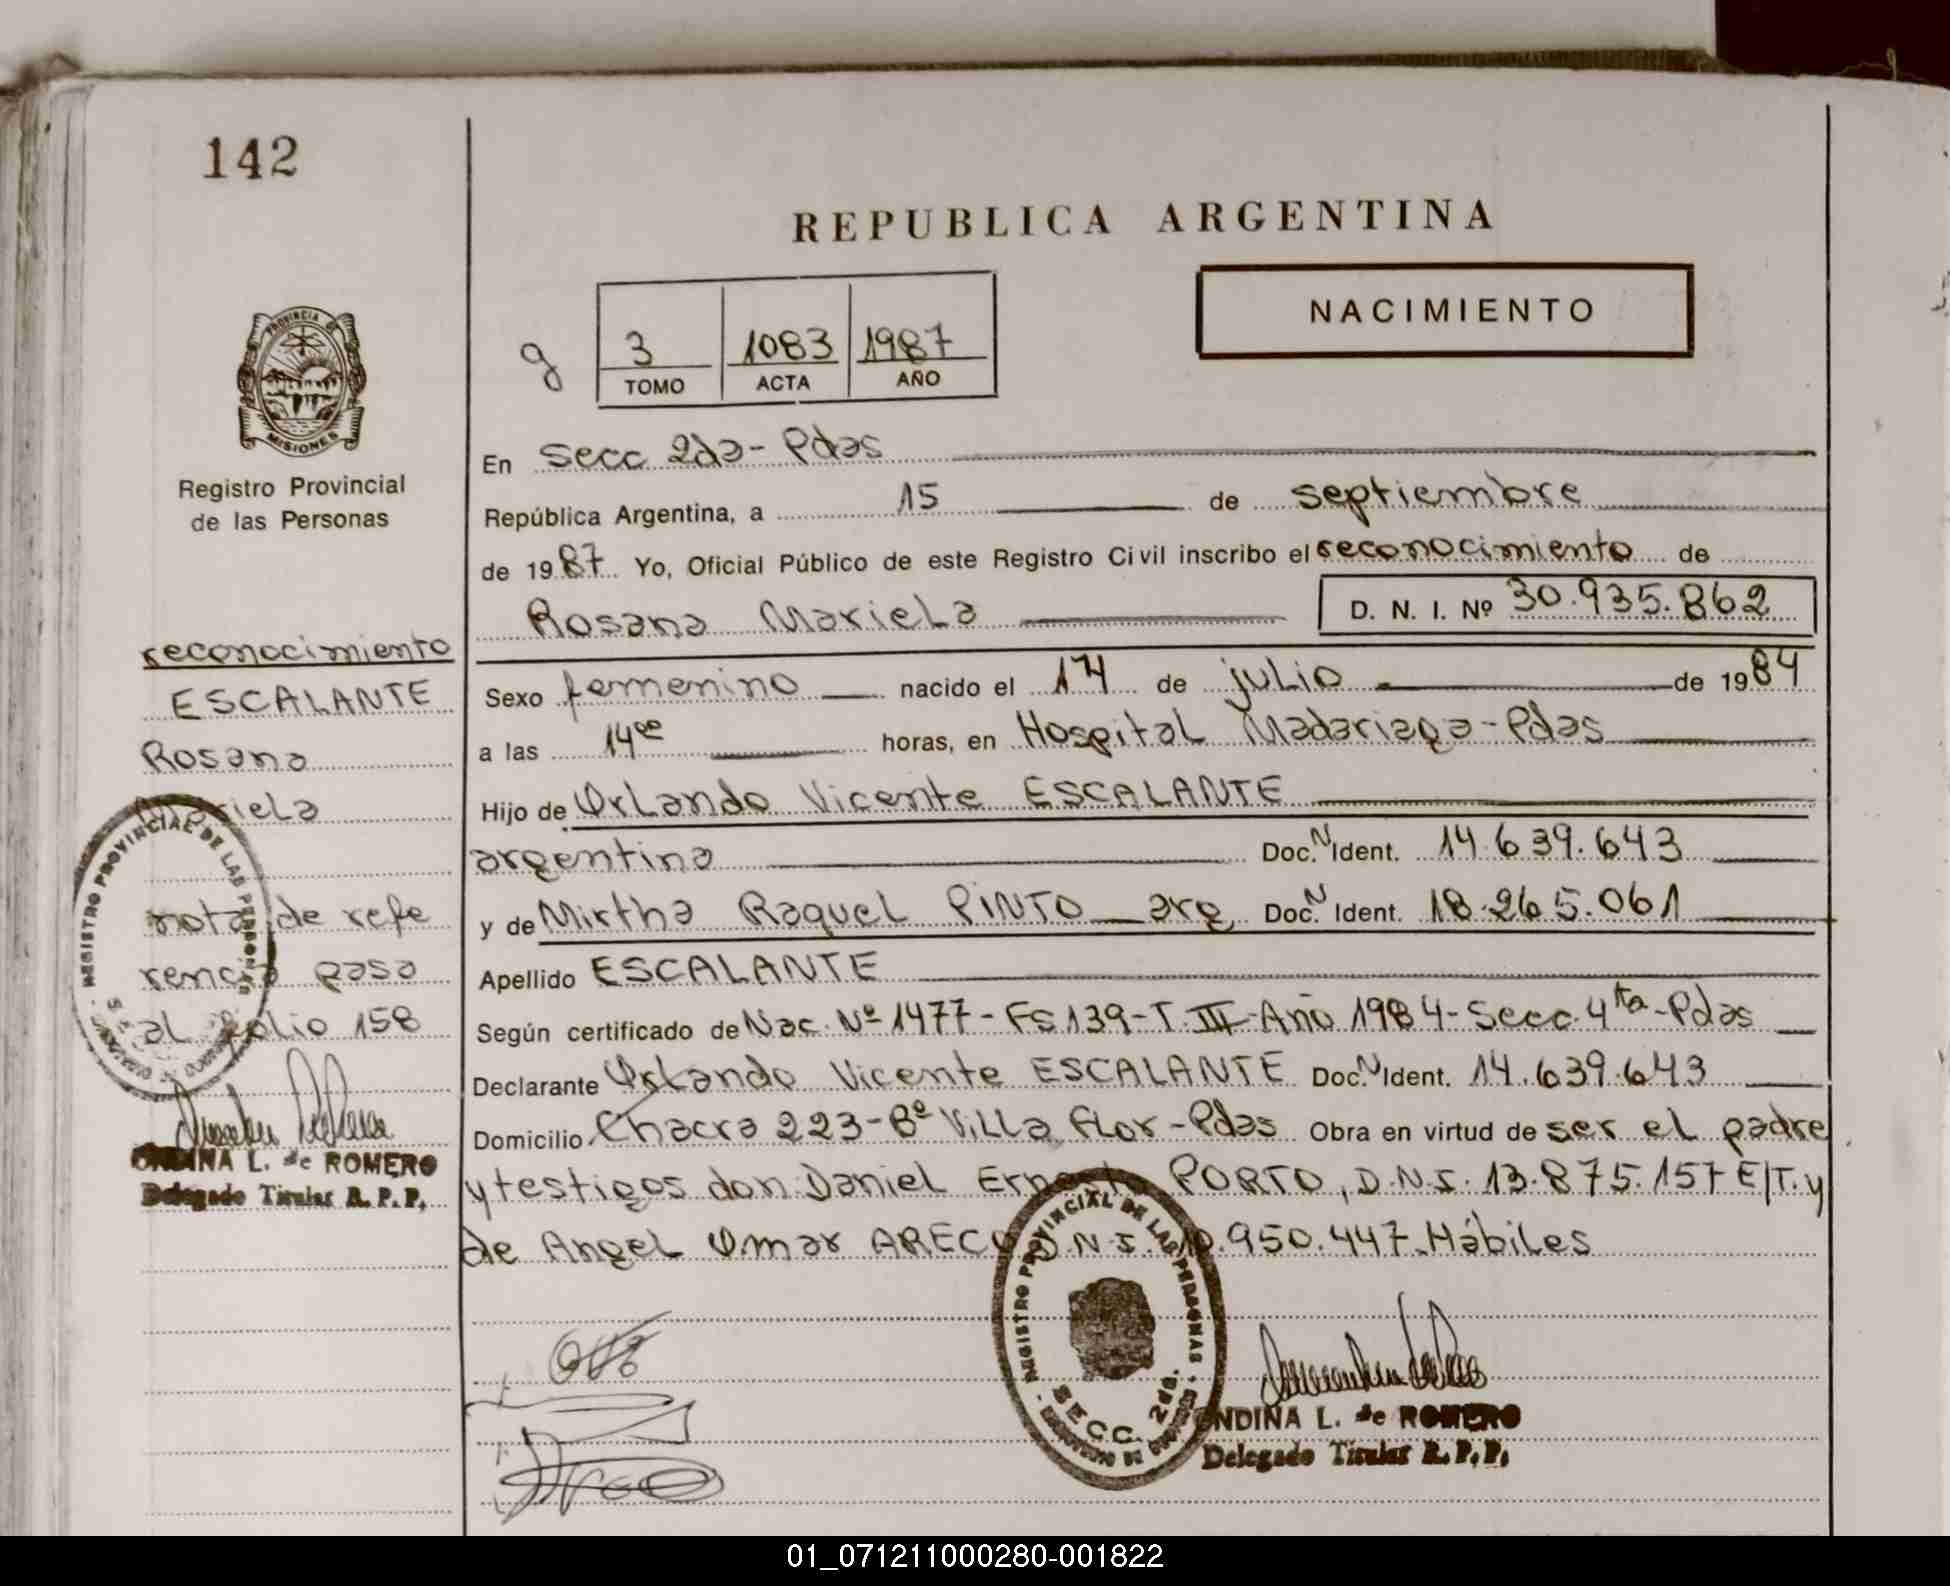 142
REPUBLICA ARGENTINA
NACIMIENTO
g
3 1083 1987
TOMO ACTA AÑO
PROVINCIA DE
MISIONES
Registro Provincial
de las Personas
En Secc 2da - Pdas
República Argentina, a 15 de septiembre
de 1987 Yo, Oficial Público de este Registro Civil inscribo el reconocimiento de
Rosana Mariela D. N. I. Nº 30.935.862
Sexo femenino nacido el 14 de julio de 1984
a las 14ºº horas, en Hospital Madariaga - Pdas
Hijo de Orlando Vicente ESCALANTE
argentina Doc. N Ident. 14.639.643
y de Mirtha Raquel PINTO arg Doc. N Ident. 18.265.061
Apellido ESCALANTE
Según certificado de Nac. Nº 1477 - Fs 139 - T. III - Año 1984 - Secc. 4ta - Pdas
Declarante Orlando Vicente ESCALANTE Doc. N Ident. 14.639.643
Domicilio Chacra 223 - Bº Villa Flor - Pdas Obra en virtud de ser el padre
y testigos don Daniel Ernesto PORTO, D.N.I. 13.875.157 E/T. y
de Angel Omar ARECO D.N.I. 10.950.447. Hábiles
reconocimiento
ESCALANTE
Rosana
Mariela
nota de refe
rencia pasa
al folio 158
REGISTRO PROVINCIAL DE LAS PERSONAS
ONDINA L. de ROMERO
Delegado Titular R.P.P.
REGISTRO PROVINCIAL DE LAS PERSONAS
SECC. 2da.
ONDINA L. de ROMERO
Delegado Titular R.P.P.
01_071211000280-001822